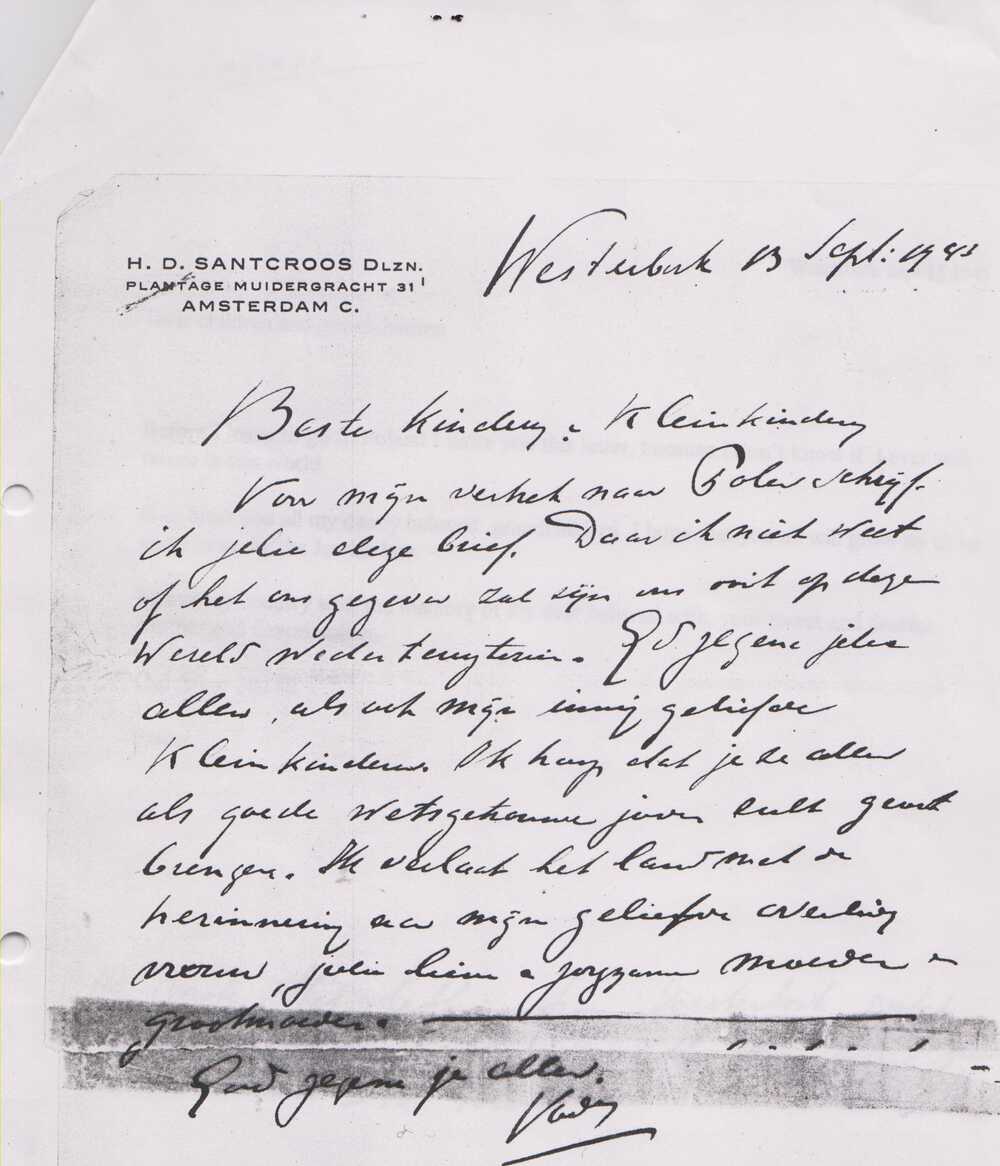 H. D. SANTCROOS DLZN.
PLANTAGE MUIDERGRACHT 31 I
AMSTERDAM C.
Westerbork 13 Sept: 1943
Beste kinderen & Kleinkinderen
Voor mijn vertrek naar Polen schrijf
ik jelie deze brief. Daar ik niet weet
of het ons gegeven zal zijn ons ooit op deze
Wereld weder terug te zien. God zegene jelie
allen, als ook mijn innig geliefde
Kleinkinderen. Ik hoop dat je ze allen
als goede wetsgetrouwe joden zult groot
brengen. Ik verlaat het land met de
herinnering aan mijn geliefde overleden
vrouw, julie lieve & zorgzame moeder en
grootmoeder.
God zegene je allen.
Vader